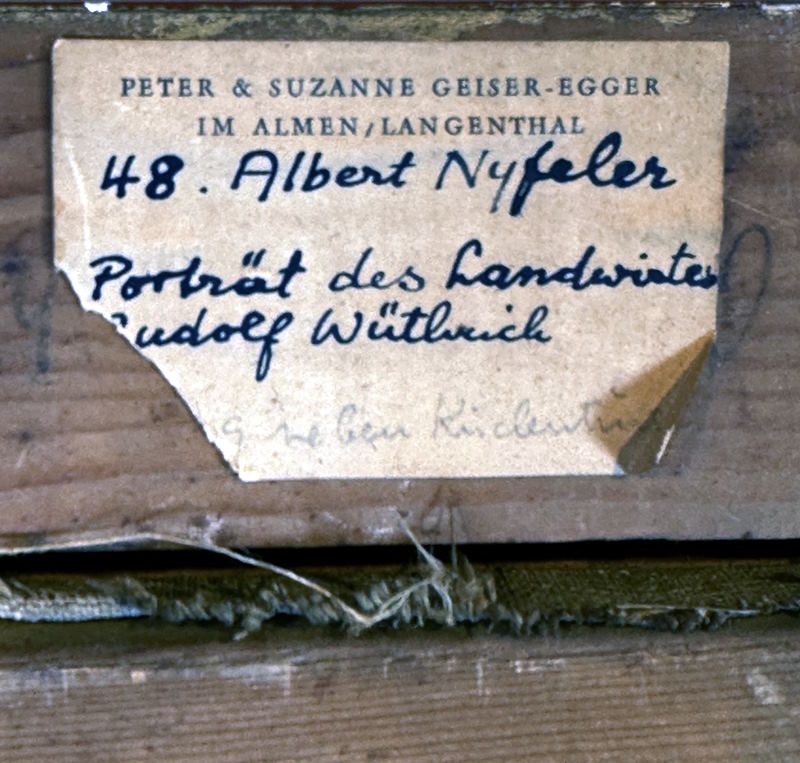 PETER & SUZANNE GEISER-EGGER
IM ALMEN/LANGENTHAL
48. Albert Nyfeler
Porträt des Landwirtes
Rudolf Wüthrich
neben